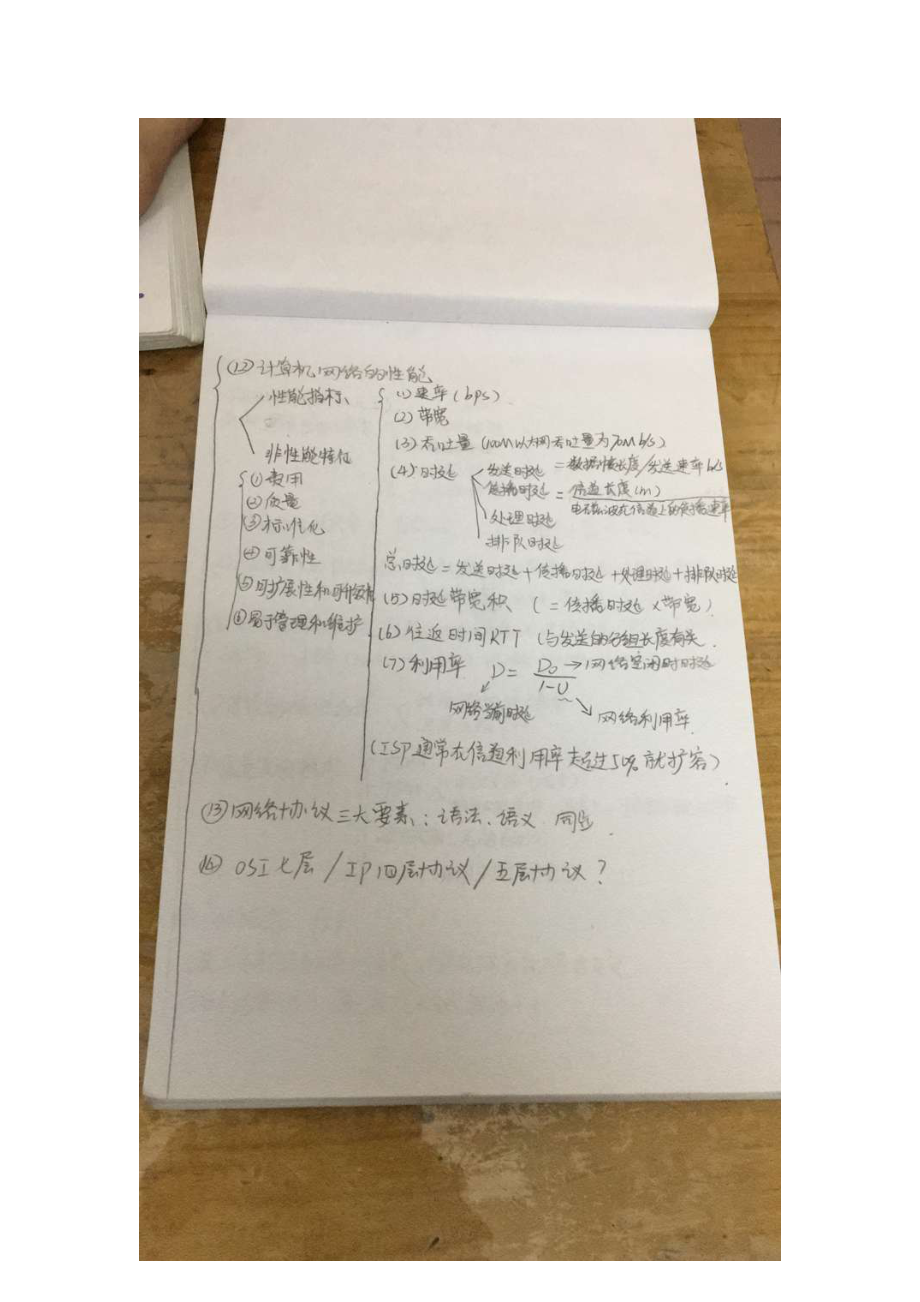 ⑫计算机网络的性能
性能指标
非性能特征
①费用
②质量
③标准化
④可靠性
⑤可扩展性和可升级性
⑥易于管理和维护
(1)速率(bps)
(2)带宽
(3)吞吐量(100M以太网吞吐量为70M b/s)
(4)时延
发送时延=数据帧长度/发送速率b/s
传播时延=信道长度(m)/电磁波在信道上的传播速率
处理时延
排队时延
总时延=发送时延+传播时延+处理时延+排队时延
(5)时延带宽积 (=传播时延×带宽)
(6)往返时间RTT (与发送的分组长度有关.
(7)利用率 D=D₀/1-U →网络空闲时时延
网络当前时延 网络利用率
(ISP通常在信道利用率超过50%就扩容)
⑬网络协议三大要素:语法、语义、同步.
⑭OSI七层/IP四层协议/五层协议?